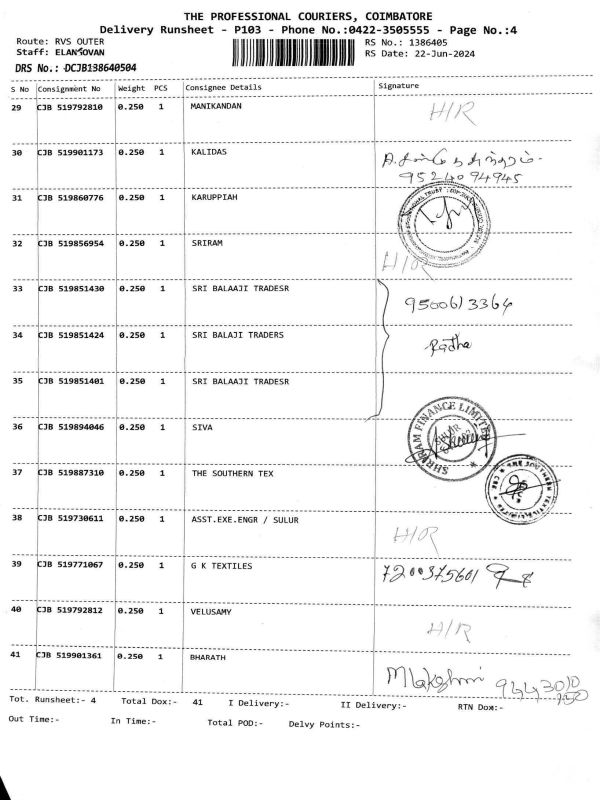 THE PROFESSIONAL COURIERS, COIMBATORE
Delivery Runsheet - P103 - Phone No.:0422-3505555 - Page No.:4
Route: RVS OUTER RS No.: 1386405
Staff: ELANGOVAN RS Date: 22-Jun-2024
DRS No.: DCJB138640504
S No Consignment No Weight PCS Consignee Details Signature
29 CJB 519792810 0.250 1 MANIKANDAN H/R
30 CJB 519901173 0.250 1 KALIDAS
9524094945
31 CJB 519860776 0.250 1 KARUPPIAH
32 CJB 519856954 0.250 1 SRIRAM H/R
33 CJB 519851430 0.250 1 SRI BALAAJI TRADESR 9500613364
34 CJB 519851424 0.250 1 SRI BALAJI TRADERS Radha
35 CJB 519851401 0.250 1 SRI BALAAJI TRADESR
36 CJB 519894046 0.250 1 SIVA SHRIRAM FINANCE LIMITED
37 CJB 519887310 0.250 1 THE SOUTHERN TEX
38 CJB 519730611 0.250 1 ASST.EXE.ENGR / SULUR H/R
39 CJB 519771067 0.250 1 G K TEXTILES 7200375601
40 CJB 519792812 0.250 1 VELUSAMY H/R
41 CJB 519901361 0.250 1 BHARATH
Tot. Runsheet:- 4 Total Dox:- 41 I Delivery:- II Delivery:- RTN Dox:-
Out Time:- In Time:- Total POD:- Delvy Points:-